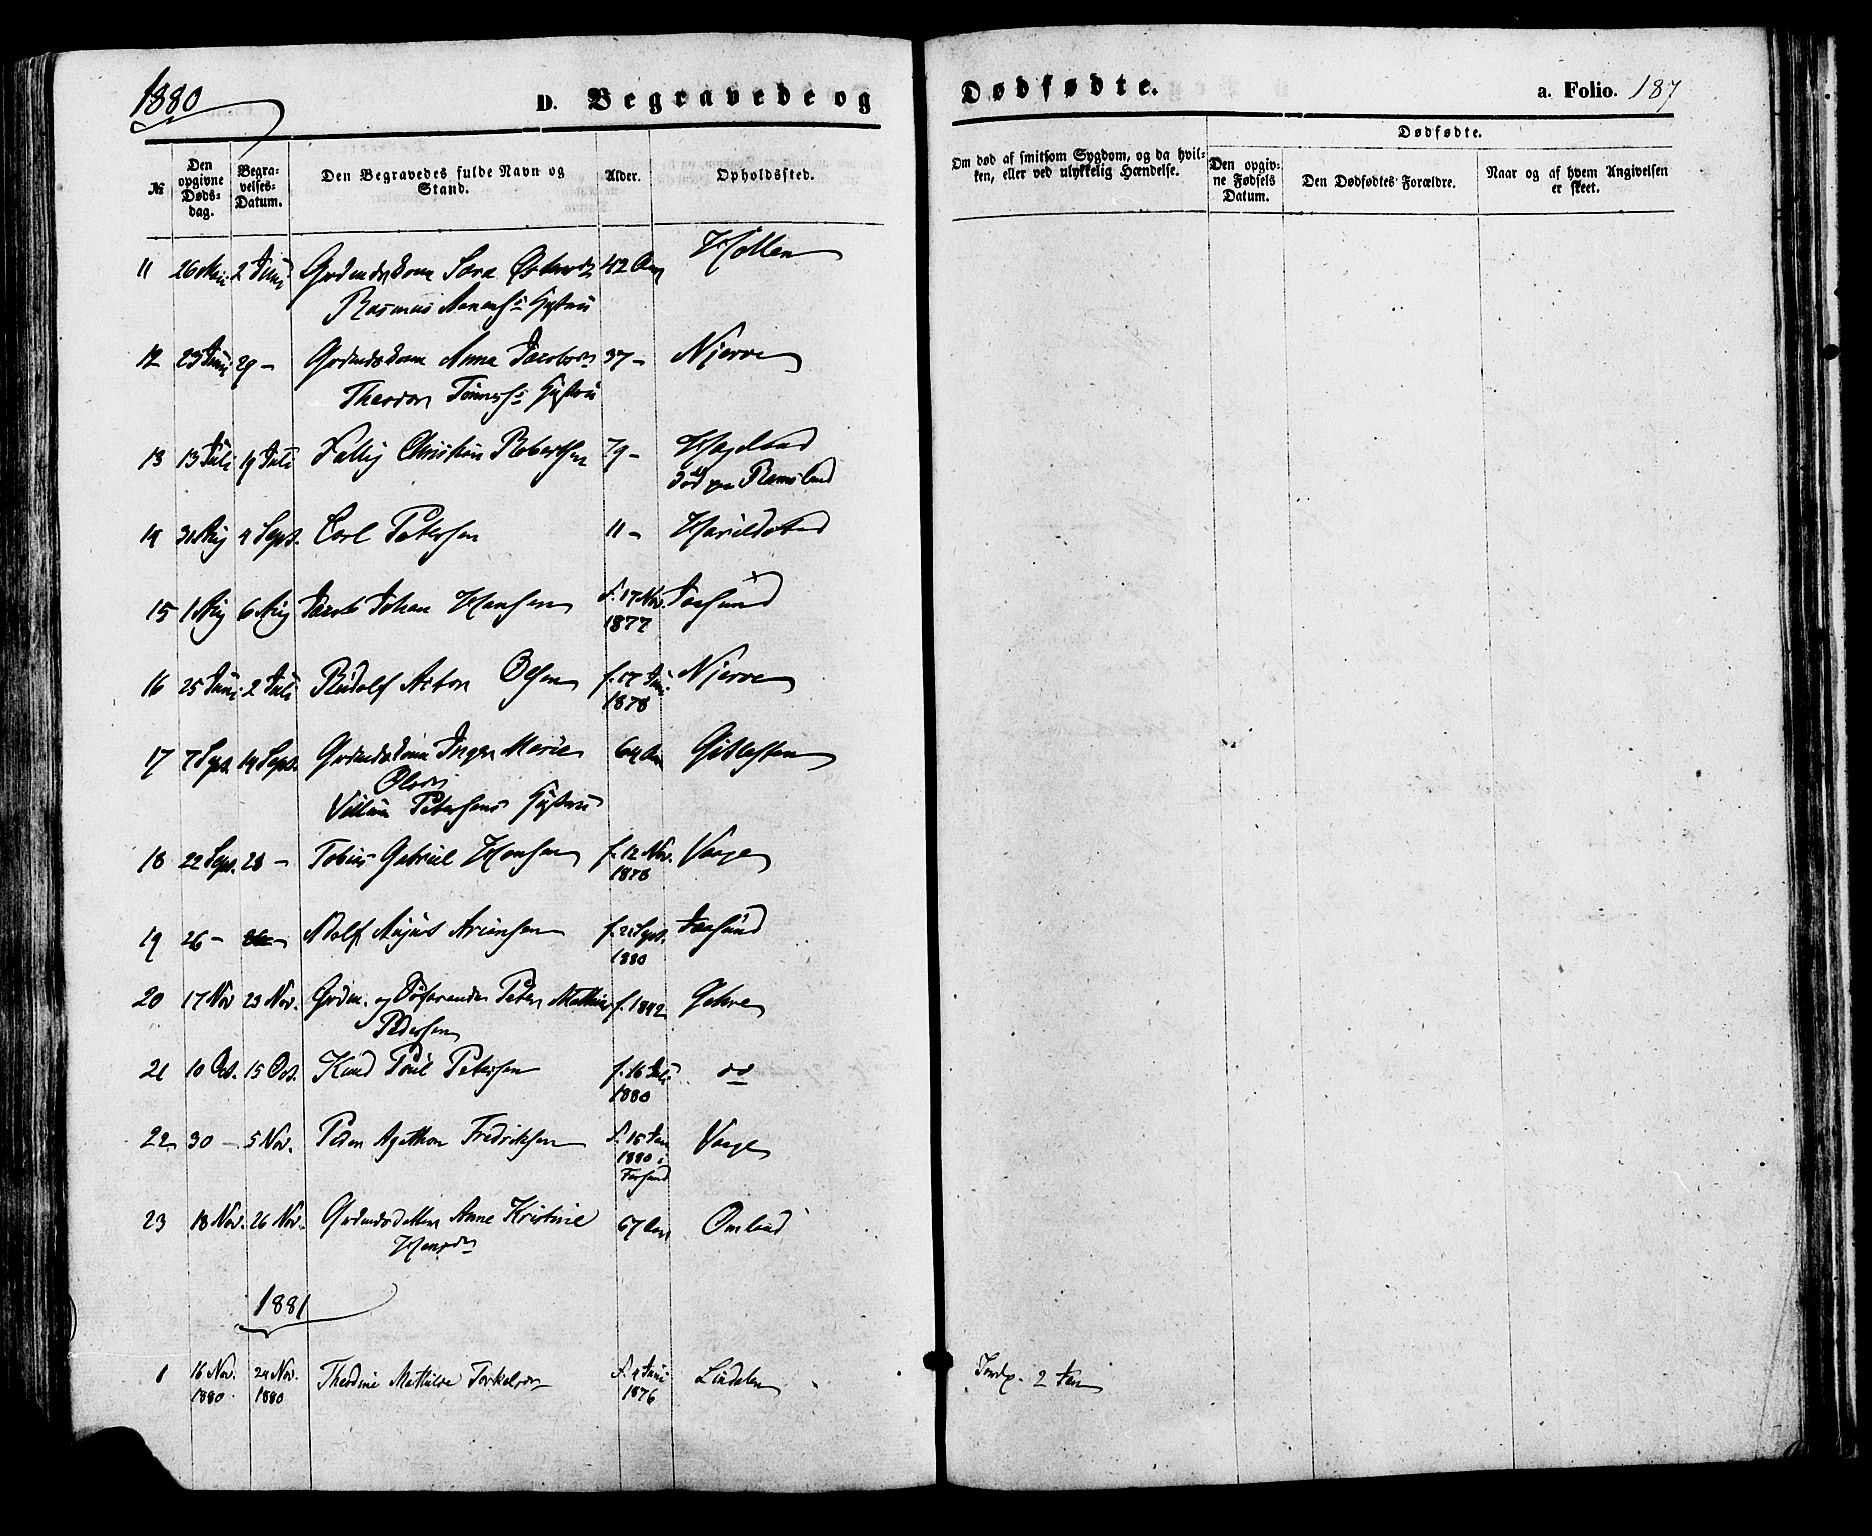 1880
D. Begravede og Dødfødte.
a. Folio. 187
№
Den opgivne Døds-dag.
Begra-velses-Datum.
Den Begravedes fulde Navn og Stand.
Alder.
Opholdssted.
Om død af smitsom Sygdom, og da hvil-ken, eller ved ulykkelig Hændelse.
Dødfødte.
Den opgiv-ne Fødsels Datum.
Den Dødfødtes Forældre.
Naar og af hvem Angivelsen er skeet.
11 26 Mai 2 Juni Grdmdskone Sara 42 Aar Hollen
Rasmus Hustru
12 23 Juni 29 – Grdmdskone Anna Jacobsdr 37 – Njerve
Theodor Tønness. Hustru
13 13 Juli 19 Juli Christian Robertsen 79 – Hageland
død paa Ramsland
14 31 Aug 4 Sept. Carl Petersen 11 – Harildstad
15 1 Aug 6 Aug Jacob Johan Hansen f. 17 Nov. Jaasund
1877
16 25 Juni 2 Juli Rudolf Anton Olsen f. 17 Juni Njerve
1878
17 7 Sept. 14 Sept. Grdmdskone Inger Marie 64 Aar Gitlesten
Olsdr
Villum Petersens Hustru
18 22 Sept. 28 – Tobias Gabriel Hansen f. 12 Nov. Vaage
1878
19 26 – Adolf August Arientsen f. 2 Sept. Jaasund
1880
20 17 Nov 23 Nov. Grdm. og Søfarende Peter Mathias f. 1842 Gahre
Pedersen
21 10 Oct. 15 Oct. Knud Poul Petersen f. 16 Juli do
1880
22 30 – 5 Nov. Peder Agathon Fredriksen f. 15 Jan Vaage
1880 i
Farsund
23 18 Nov. 26 Nov. Grdmdsdatter Anne Kristine 67 Aar Omland
Hansdr
1881
1 16 Nov. 24 Nov. Theodine Mathilde Torkelsdr f. 4 Juni Lindalen
1880 1880 1876
Indf. 2 Jan